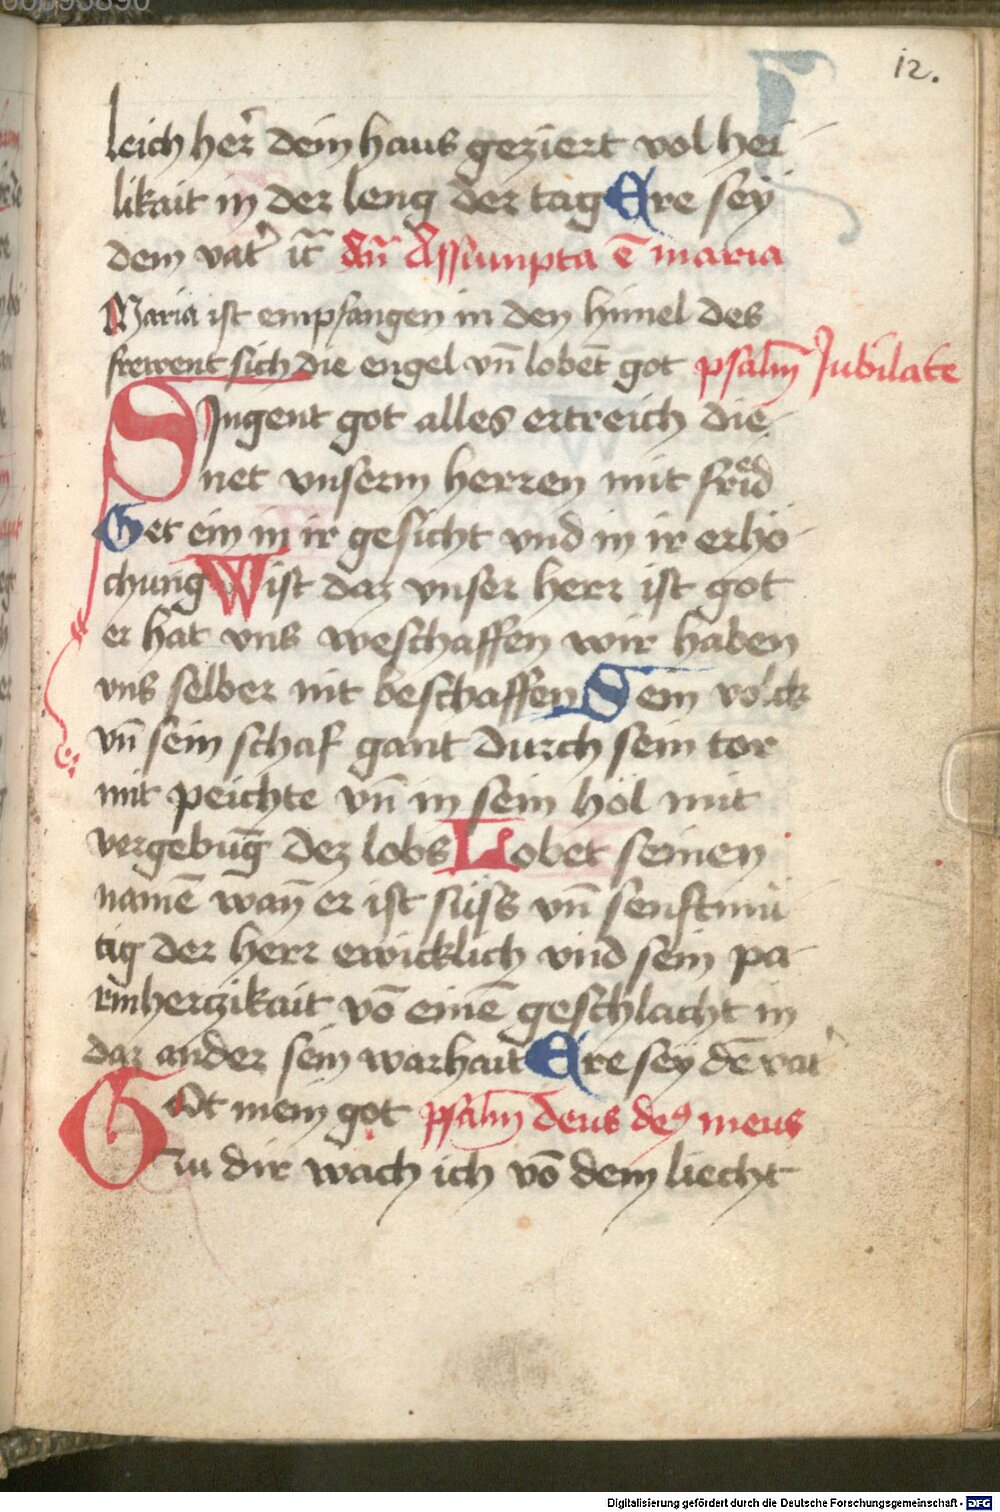 12.
leich her͛ dein haus geziert vol hei
likait in der leng der tag Ere sey
dem vat͛ ꝛc̄ An̄ Assumpta ē maria
Maria ist empfangen in den himel des
frewent sich die engel vn̄ lobet got psalm̄ Jubilate
Singent got alles ertreich die
net vnserm herren mit frewd
Get ein in ir gesicht vnd in ir erho
chung Wist daz vnser herr ist got
er hat vns weschaffen wir haben
vns selber nit beschaffen Sein volck
vn̄ sein schaf gant durch sein tor
mit peichte vn̄ in sein höl mit
vergebūg dez lobs Lobet seinen
namē wan̄ er ist süss vn̄ senftmü
tig der herr ewicklich vnd sein pa
rmherczikait vō einē geschlächt in
daz ander sein warhait Ere sey dē vat͛
Gödt mein got psalm̄ deus deꝰ meus
Czu dir wach ich vō dem liecht
Digitalisierung gefördert durch die Deutsche Forschungsgemeinschaft - DFG